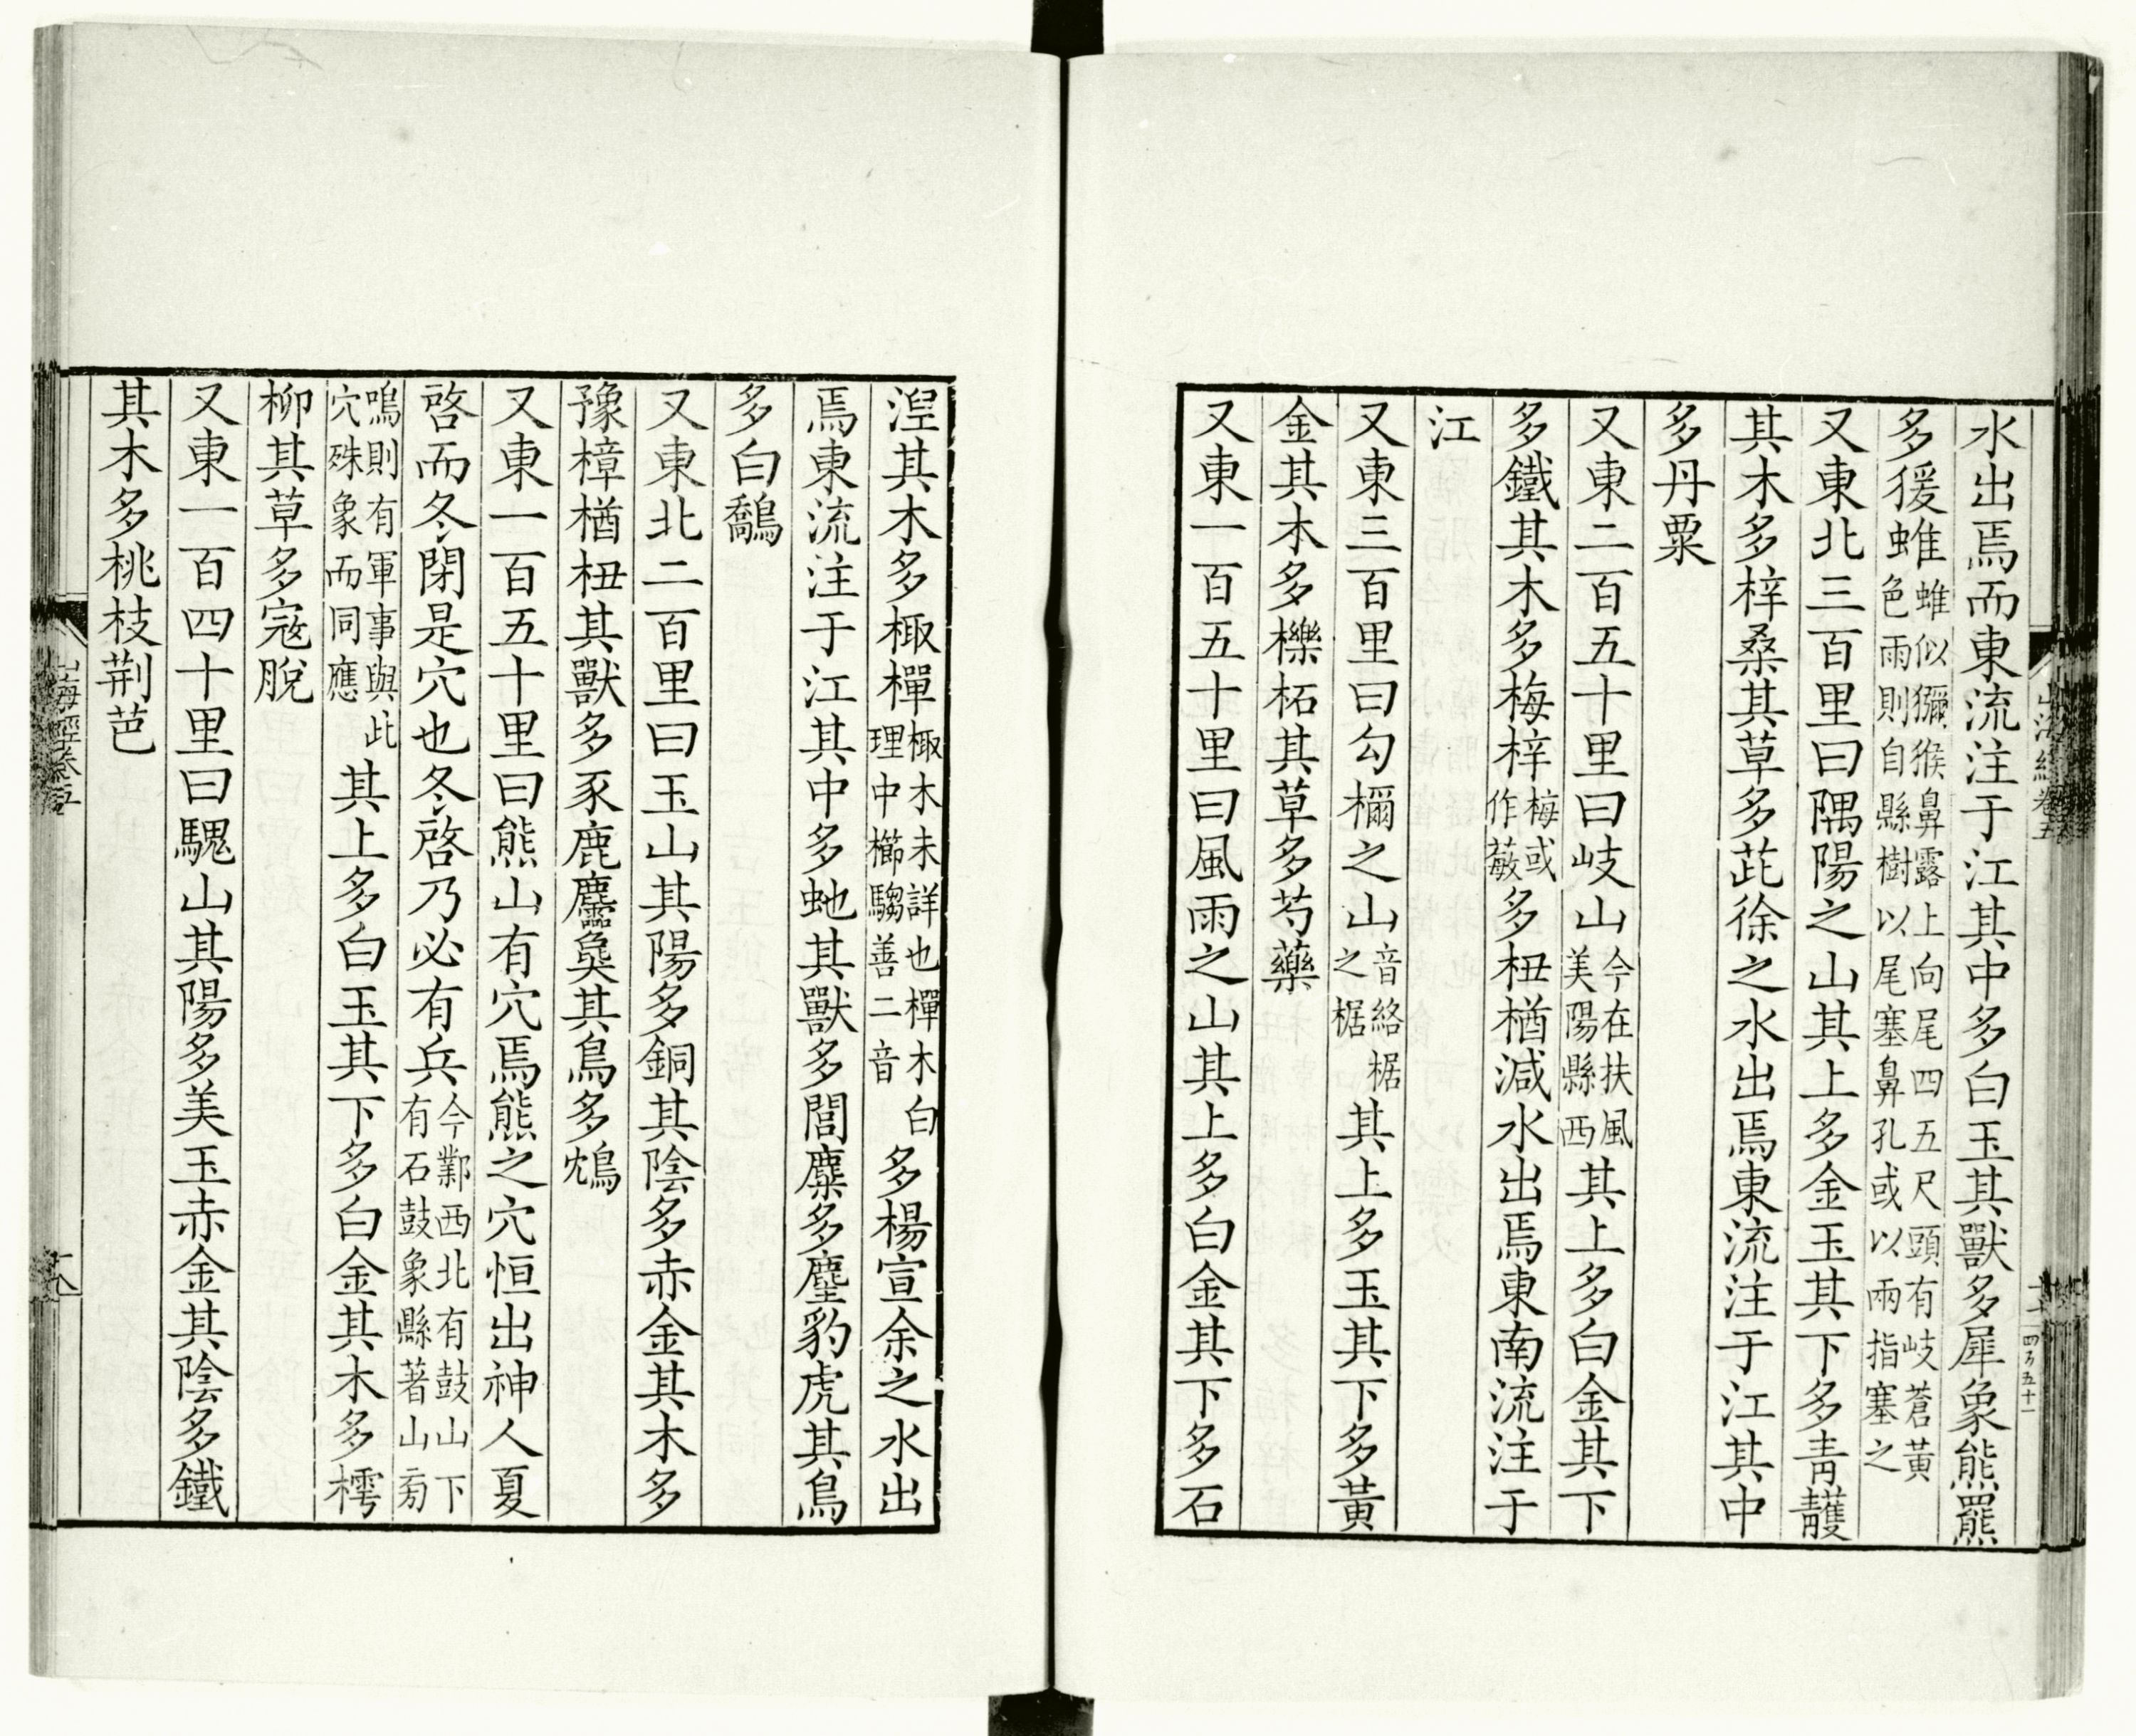 水出焉而東流注于江其中多白玉其獸多犀象熊羆
多猨蜼蜼似獼猴鼻露上向尾四五尺頭有岐蒼黃色雨則自縣樹以尾塞鼻孔或以兩指塞之
又東北三百里曰隅陽之山其上多金玉其下多青雘
其木多梓桑其草多茈徐之水出焉東流注于江其中
多丹粟
又東二百五十里曰岐山今在扶風美陽縣西其上多白金其下
多鐵其木多梅梓梅或作䓯多杻楢減水出焉東南流注于
江
又東三百里曰勾檷之山音絡椐之椐其上多玉其下多黃
金其木多櫟柘其草多芍藥
又東一百五十里曰風雨之山其上多白金其下多石
涅其木多棷樿棷木未詳也樿木白理中櫛騶善二音多楊宣余之水出
焉東流注于江其中多虵其獸多閭麋多麈豹虎其鳥
多白鷮
又東北二百里曰玉山其陽多銅其陰多赤金其木多
豫樟楢杻其獸多豕鹿麢㚟其鳥多鴆
又東一百五十里曰熊山有穴焉熊之穴恒出神人夏
啓而冬閉是穴也冬啓乃必有兵今鄴西北有鼓山下有石鼓象縣著山旁
鳴則有軍事與此穴殊象而同應其上多白玉其下多白金其木多樗
柳其草多寇脫
又東一百四十里曰騩山其陽多美玉赤金其陰多鐵
其木多桃枝荆芭
山海經卷五
山海經卷五
十八